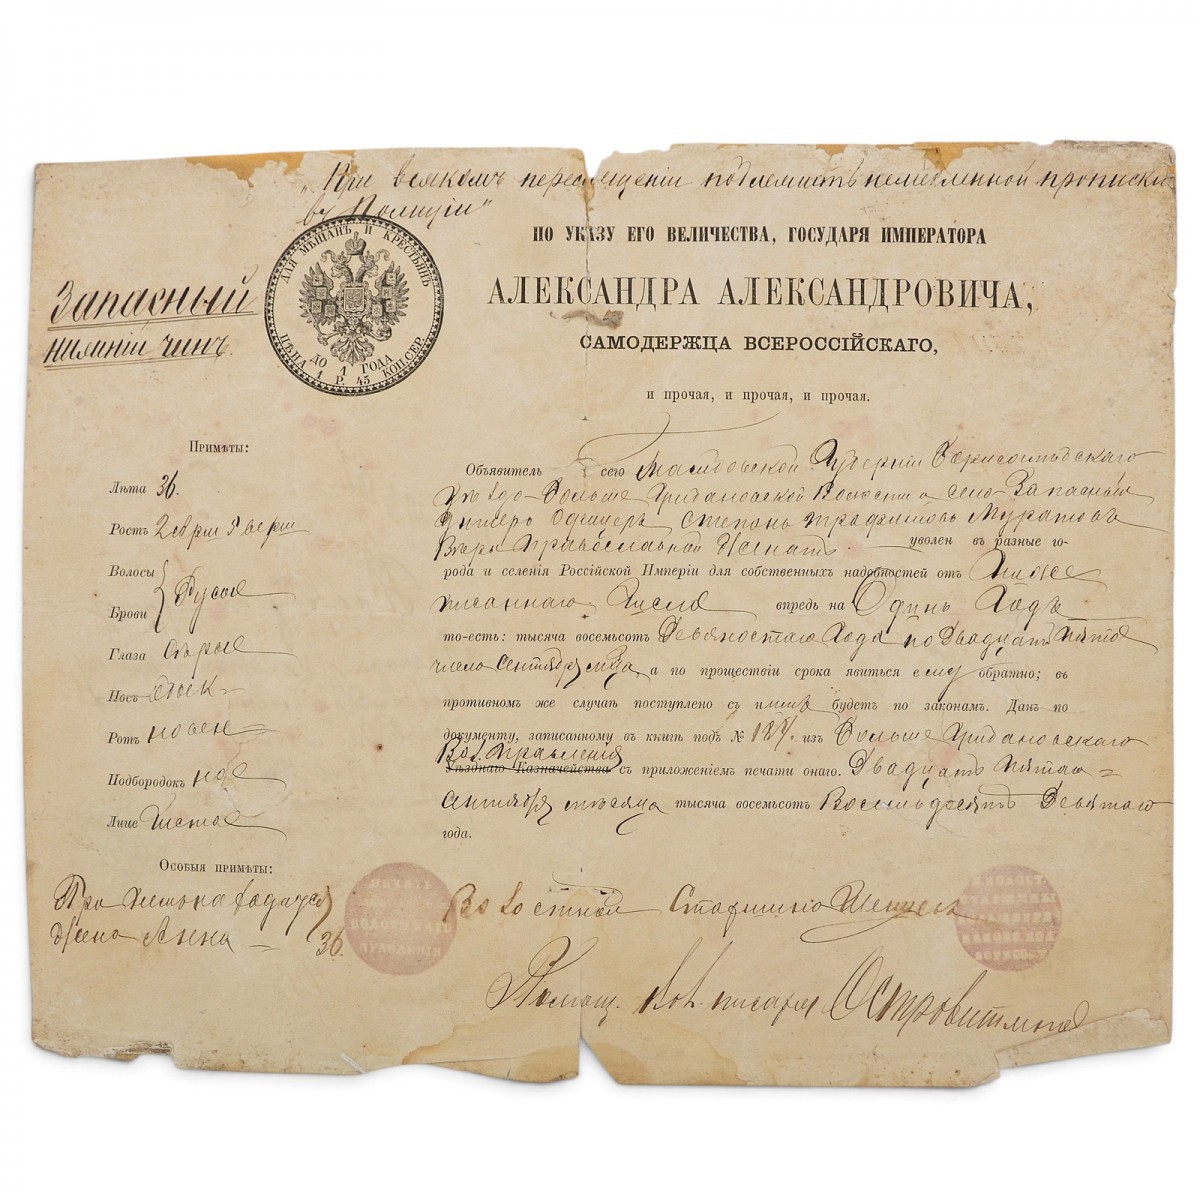 „При всякомъ перемещеніи подлежитъ немедленной прописки
въ Полиціи"
ДЛЯ МѢЩАНЪ И КРЕСТЬЯНЪ
ДО 1 ГОДА
ЦѢНА 1 Р. 45 КОП. СЕР.
Запасный
нижній чинъ.
ПО УКАЗУ ЕГО ВЕЛИЧЕСТВА, ГОСУДАРЯ ИМПЕРАТОРА
АЛЕКСАНДРА АЛЕКСАНДРОВИЧА,
САМОДЕРЖЦА ВСЕРОССІЙСКАГО,
и прочая, и прочая, и прочая.
Примѣты:
Лѣта 36.
Ростъ 2 арш 5 верш
Волосы
Брови Русые
Глаза Сѣрые
Носъ
Ротъ
Подбородокъ
Лице Чистое
Особыя примѣты:
жена Анна 36.
Объявитель сего Тамбовской Губерніи Борисоглѣбскаго
Уѣзда Больше Грибановской Волости и села Запасный
Унтеръ Офицеръ Степанъ Трафимовъ Муратовъ
Вѣры Православной Женатъ уволен въ разные го-
рода и селенія Россійской Имперіи для собственныхъ надобностей от Ниже
писаннаго Числа впредь на Одинъ Годъ
то-есть: тысяча восемьсотъ Девяностаго Года по Двадцать Пятое
число Сентября м-ца, а по прошествіи срока явиться ему обратно; въ
противном же случаѣ поступлено съ нимъ будетъ по законамъ. Данъ по
документу, записанному в книгѣ подъ № изъ Больше Грибановскаго
Вол. Правленія
Уѣзднаго Казначейства съ приложеніемъ печати онаго. Двадцать Пятаго
Сентября мѣсяца тысяча восемьсотъ Восемьдесятъ Девятаго
года.
Волостной Старшина
Помощ. Вол. писаря